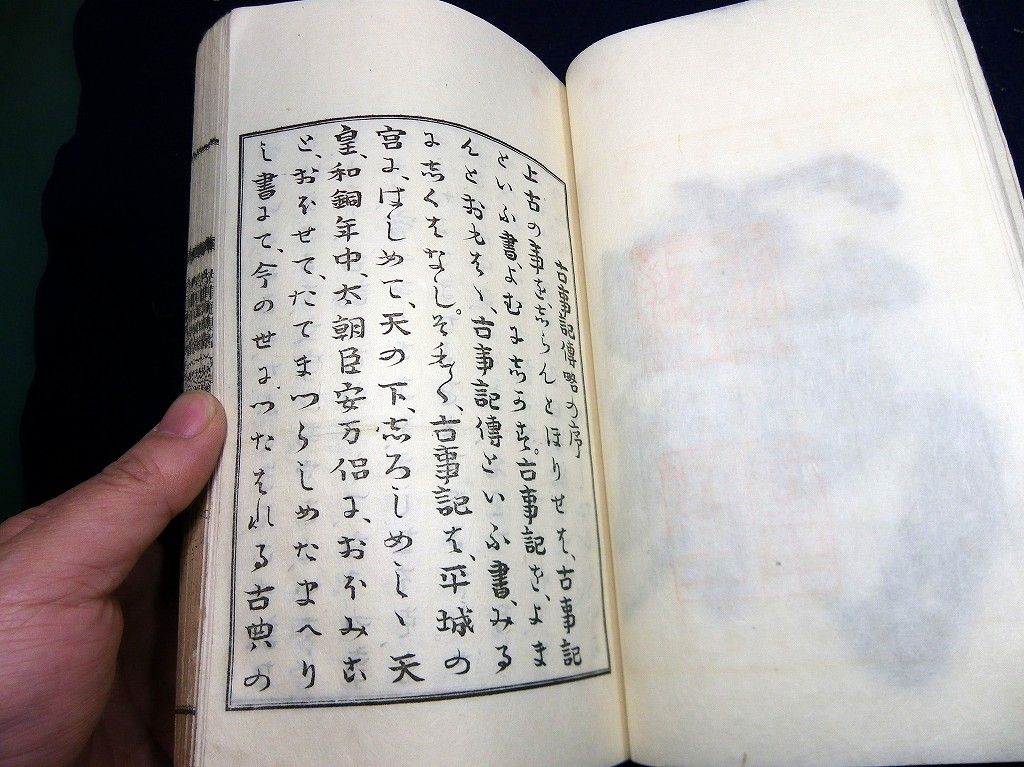 古事記傳略の序
上古の事を志らんとほりせは、古事記
といふ書、よむに志かす。古事記を、よま
んとおもはゝ、古事記傳といふ書、みる
に志くはなし。そも〱、古事記は、平城の
宮に、はしめて、天の下、志ろしめしゝ天
皇、和銅年中、太朝臣安万侶に、おほみこ
と、おほせて、たてまつらしめたまへり
し書にて、今の世に、つたはれる古典の